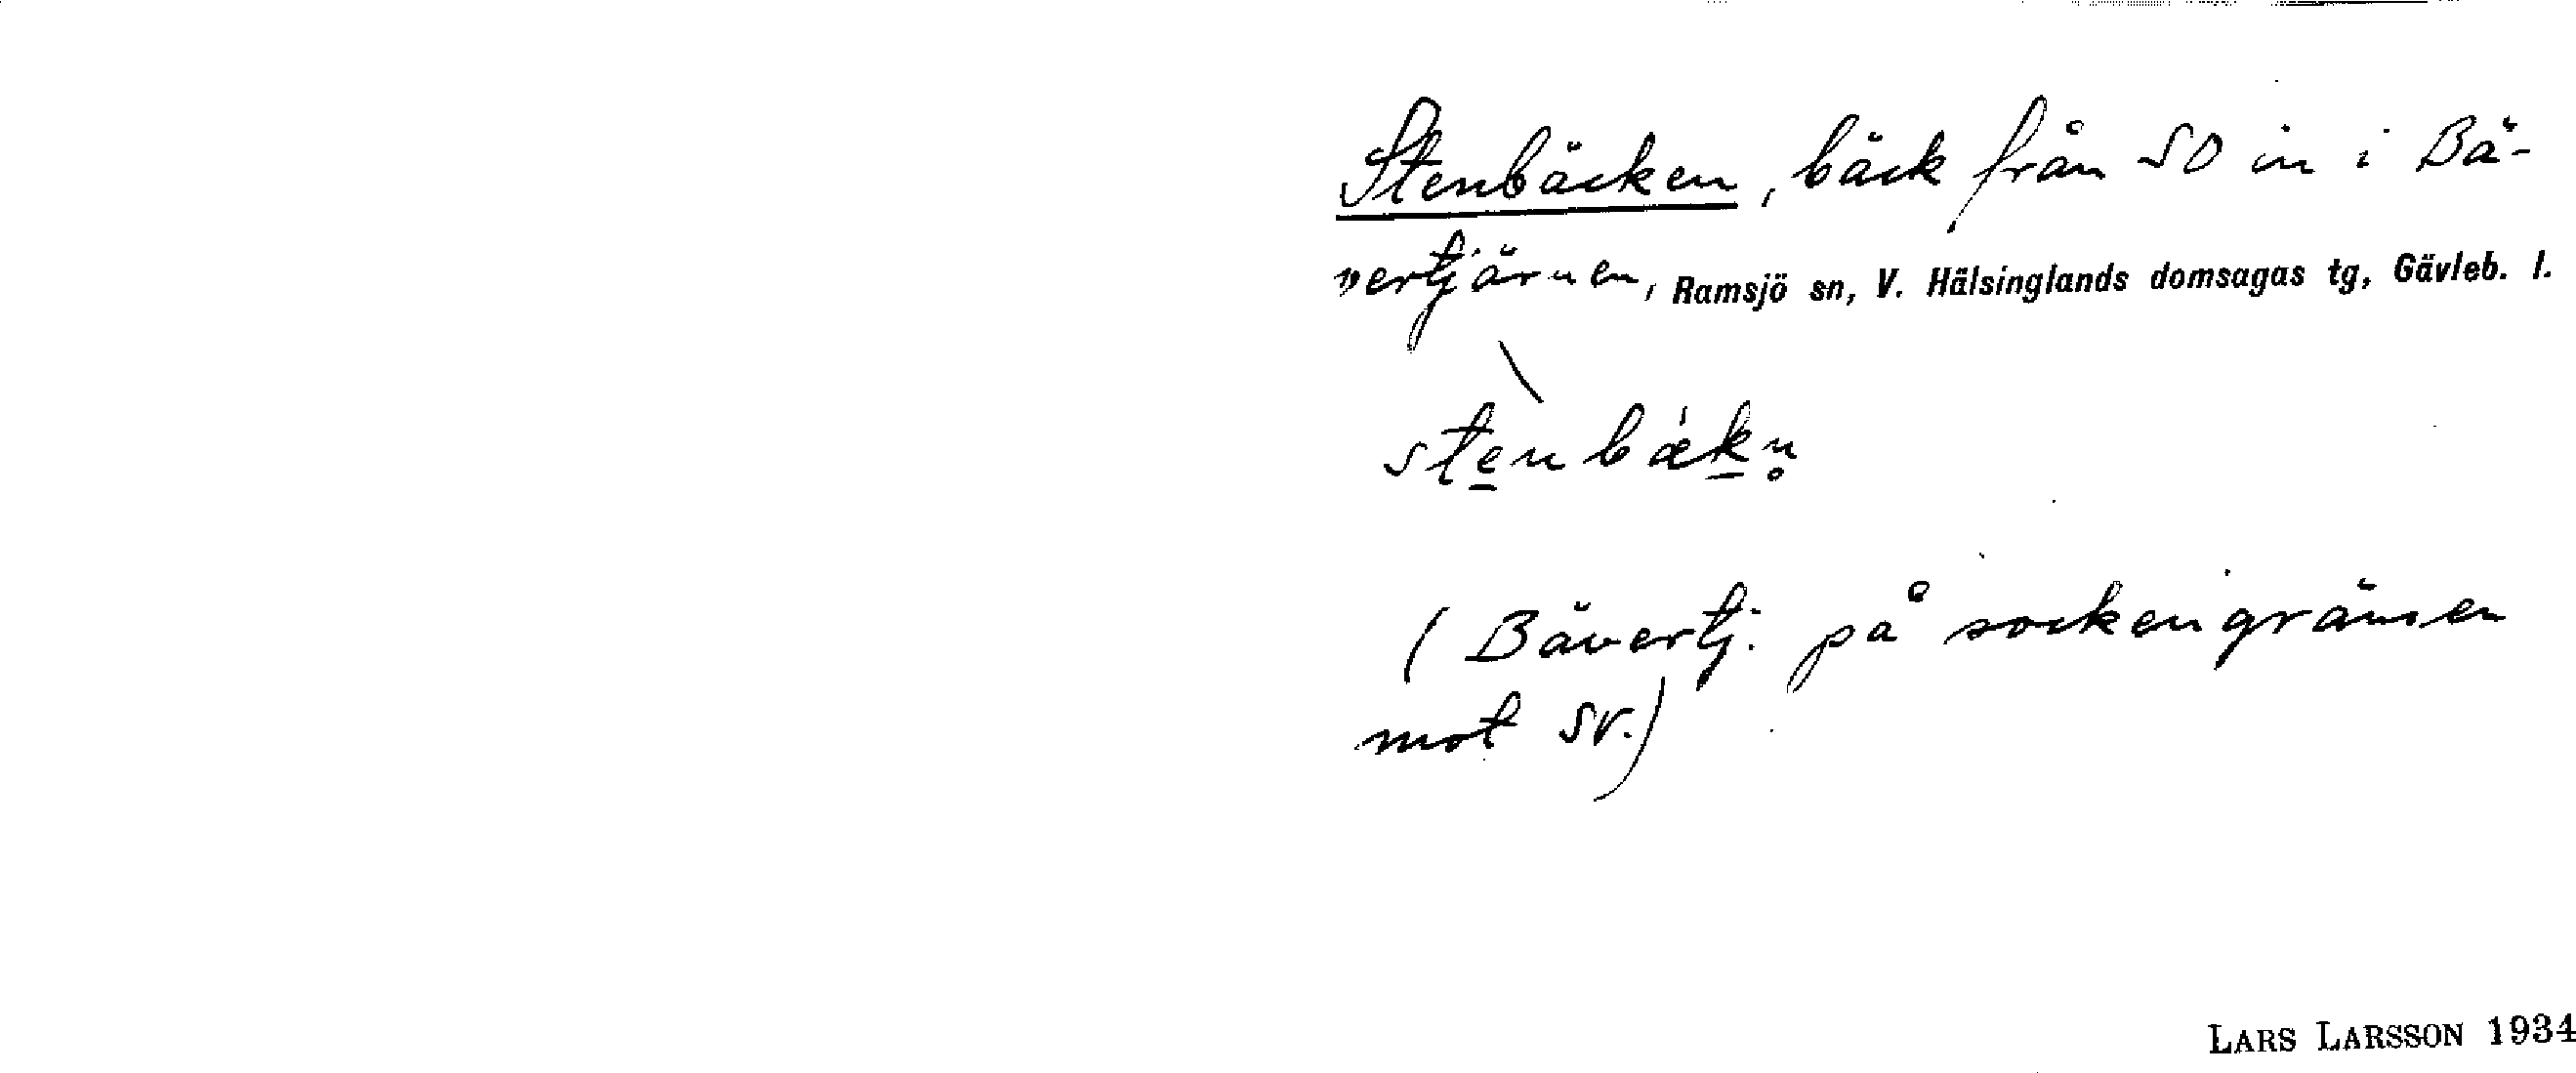 Stenbäcken, bäck från SO in i Bä-
vertjärnen, Ramsjö sn, V. Hälsinglands domsagas tg, Gävleb. l.
ste̲nbæ̍k̲n̥
(Bävertj. på sockengränsen
mot SV.)
LARS LARSSON 1934